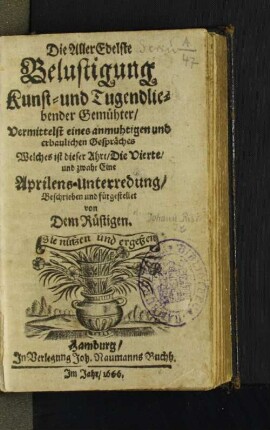 Die AllerEdelste
Belustigung
Kunst- und Tugendlie-
bender Gemühter/
Vermittelst eines anmuhtigen und
erbaulichen Gespräches
Welches ist dieser Ahrt/ Die Vierte/
und zwahr Eine
Aprilens-Unterredung/
Beschrieben und fürgestellet
von
Dem Rüstigen.
Sie nützen und ergetzen
Hamburg/
In Verlegung Joh. Naumanns Buchh.
Im Jahr/ 1666.